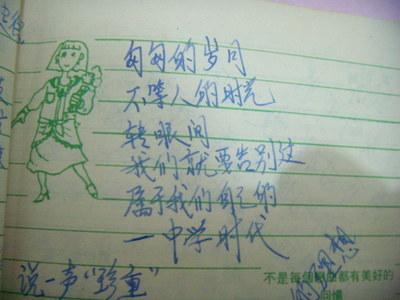 匆匆的岁月
不等人的时光
转眼间
我们就要告别这
属于我们自己的
一中学时代
说一声“珍重”
不是每個 都有美好的
回憶
想